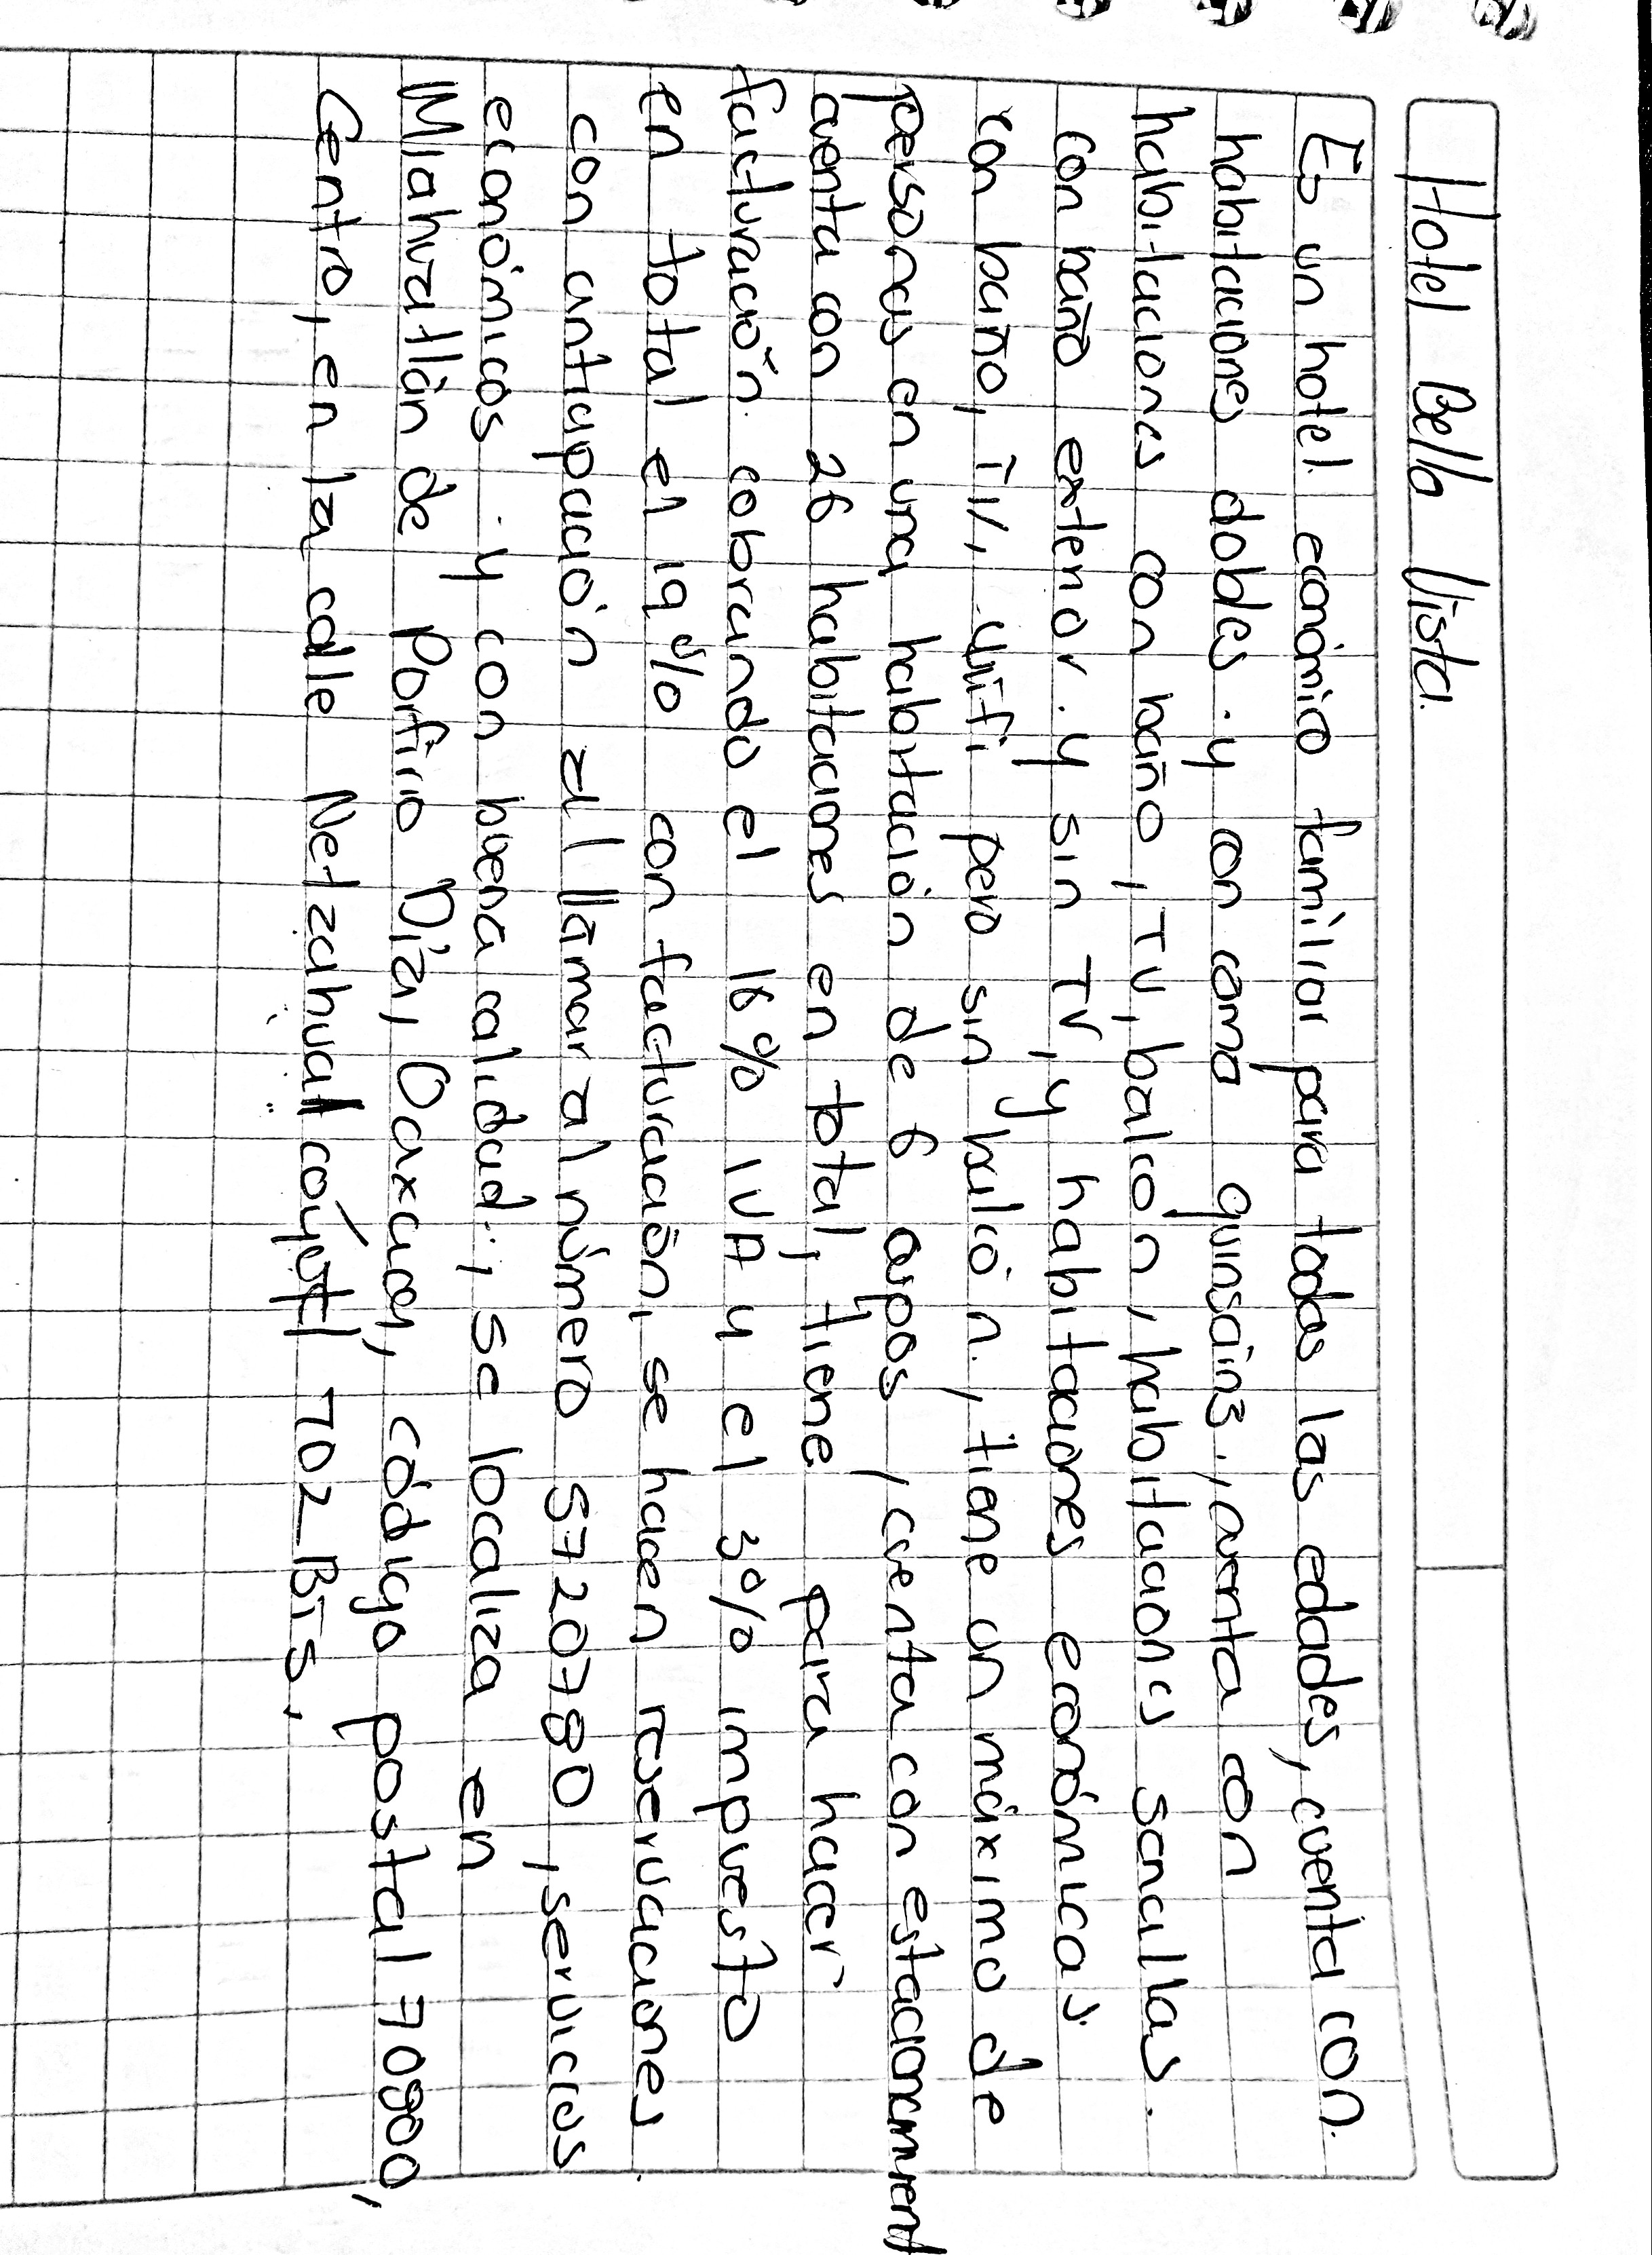 Hotel Bella Vista.
Es un hotel económico familiar para todas las edades, cuenta con
habitaciones dobles y con cama quinsainz, cuenta con
habitaciones con baño, TV, balcón, habitaciones sencillas.
con baño exterior y sin TV, y habitaciones económicas
con baño, TV, wifi pero sin balcón, tiene un máximo de
personas en una habitación de 6 cupos, cuenta con estacionamient
cuenta con 26 habitaciones en total, tiene para hacer
facturación cobrando el 16% IVA y el 3% impuesto
en total el 19% con facturación, se hacen reservaciones
con anticipación al llamar al número 5720780, servicios
económicos y con buena calidad, se localiza en
Miahuatlán de Porfirio Díaz, Oaxaca, código postal 70800,
Centro, en la calle Netzahualcóyotl 702 BIS.